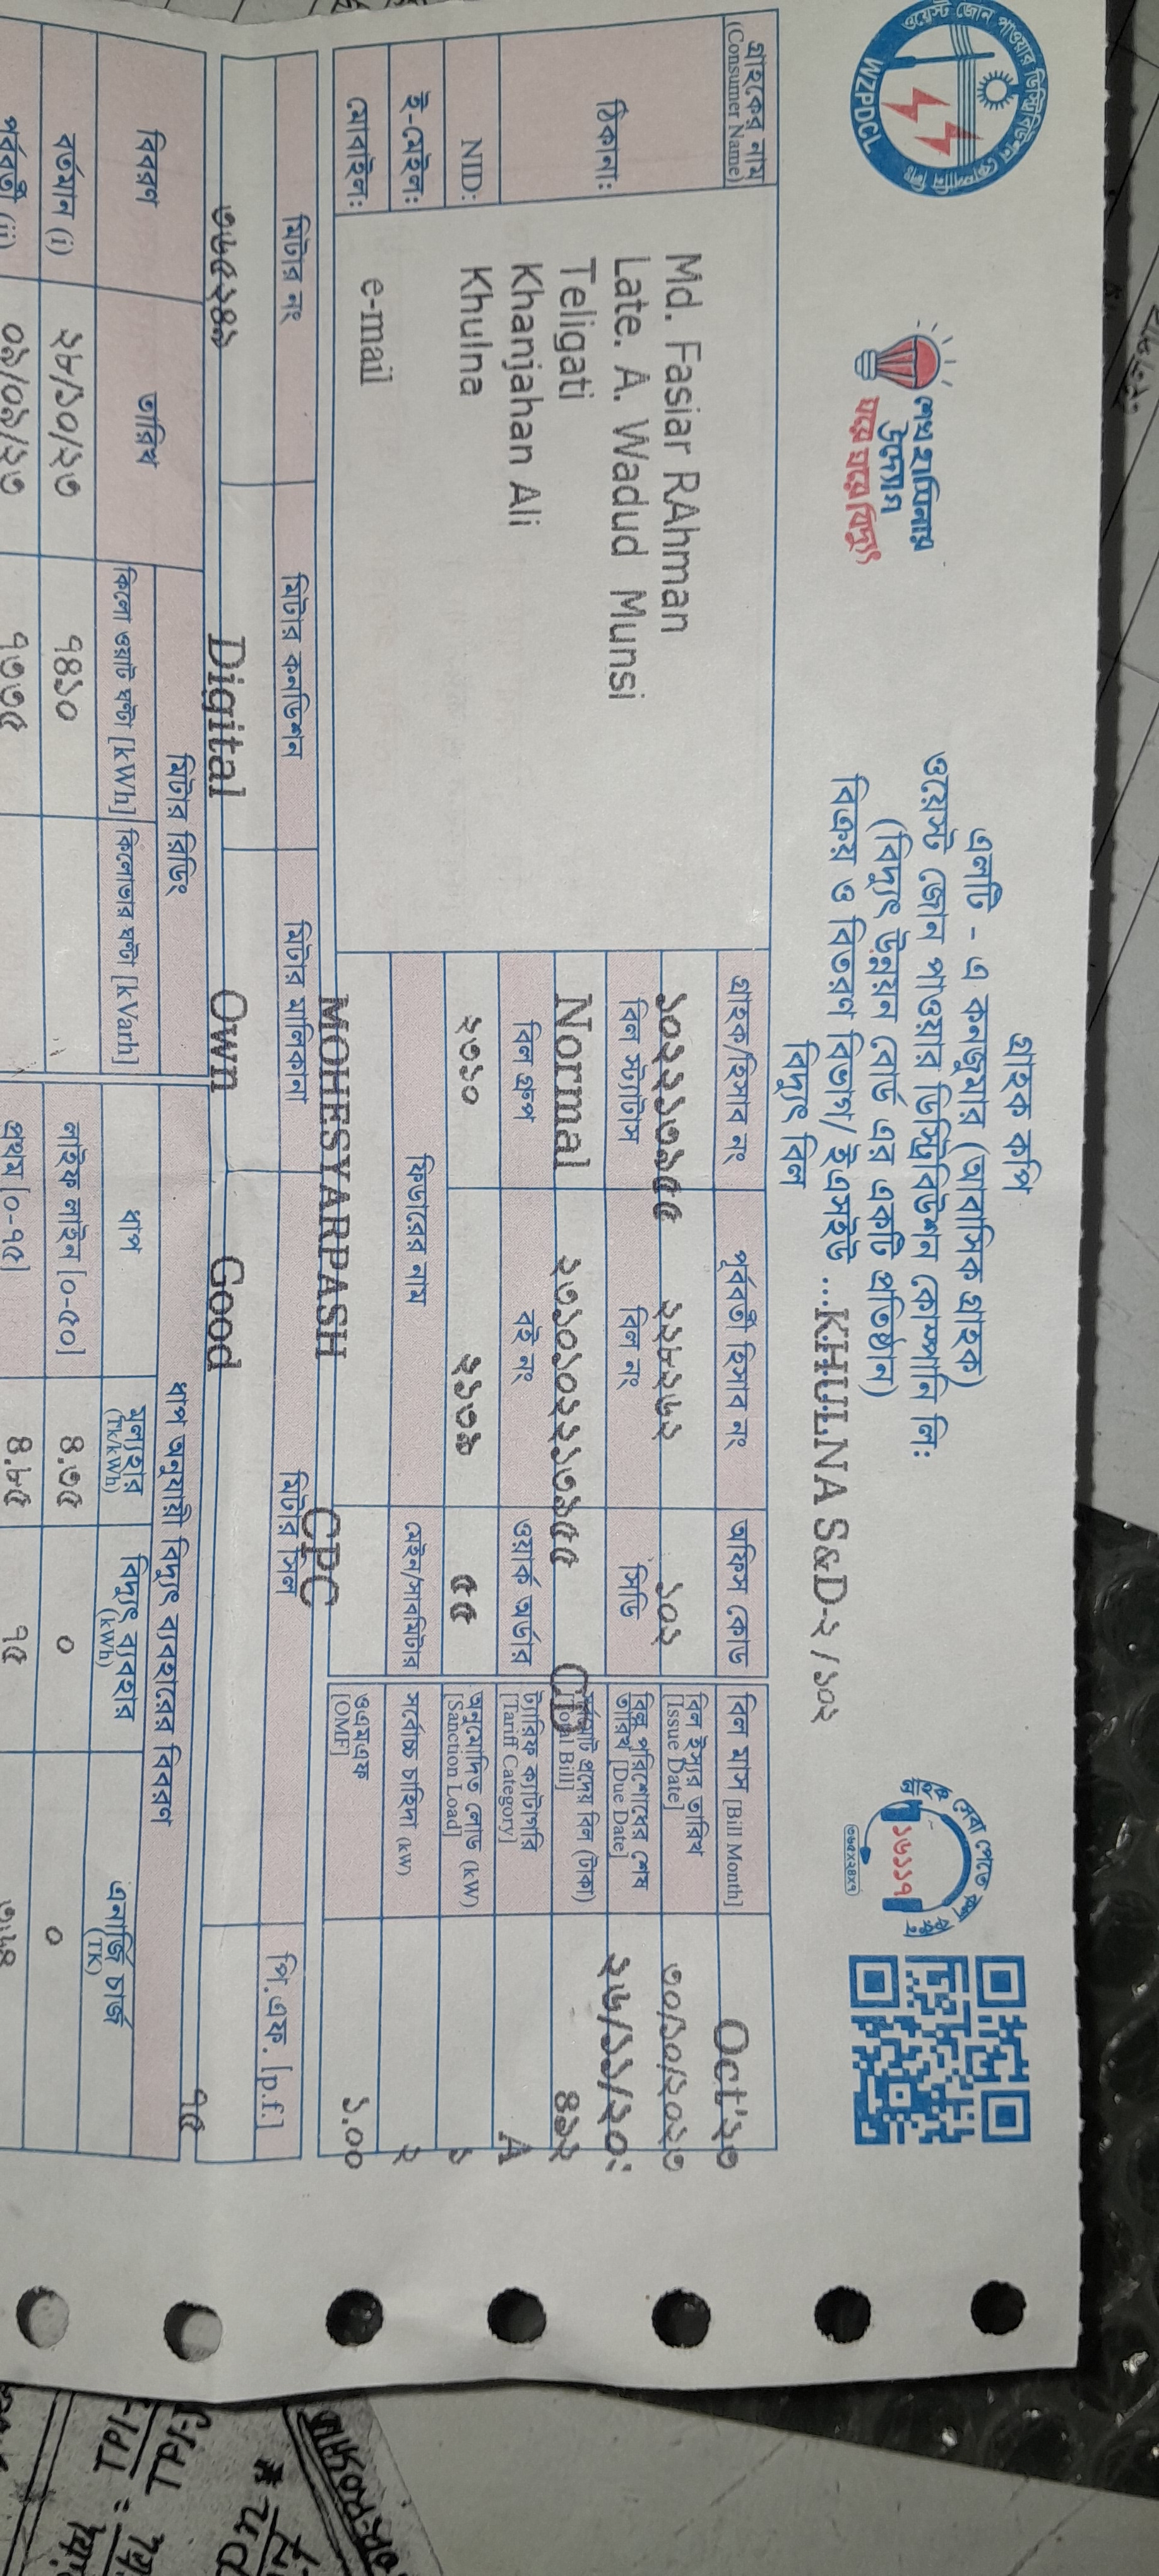 গ্রাহক কপি
এলটি - এ কনজুমার (আবাসিক গ্রাহক)
ওয়েস্ট জোন পাওয়ার ডিস্ট্রিবিউশন কোম্পানি লি:
(বিদ্যুৎ উন্নয়ন বোর্ড এর একটি প্রতিষ্ঠান)
বিক্রয় ও বিতরণ বিভাগ/ ইএসইউ ...KHULNA S&D-২ / ১০২
বিদ্যুৎ বিল
ওয়েস্ট জোন পাওয়ার ডিস্ট্রিবিউশন কোম্পানি লিঃ
WZPDCL
শেখ হাসিনার
উদ্যোগ
ঘরে ঘরে বিদ্যুৎ
সেবা পেতে কল
১৬১১৭
৩৬৫X২৪X৭
গ্রাহকের নাম
(Consumer Name)
Md. Fasiar RAhman
Late. A. Wadud Munsi
ঠিকানা:
Teligati
Khanjahan Ali
NID:
Khulna
ই-মেইল:
মোবাইল:
e-mail
গ্রাহক/হিসাব নং
পূর্ববর্তী হিসাব নং
অফিস কোড
১০২২১৭৯৫৫
২২৮২৬২
১০২
বিল স্ট্যাটাস
বিল নং
সিডি
Normal
২৩১০১০২২১৭৯৫৫
CD
বিল গ্রুপ
বই নং
ওয়ার্ক অর্ডার
২৩১০
২১৩৯
৫৫
ফিডারের নাম
মেইন/সাবমিটার
MOHESYARPASH
CPC
বিল মাস [Bill Month]
Oct'২৩
বিল ইস্যুর তারিখ
[Issue Date]
৩০/১০/২০২৩
বিল পরিশোধের শেষ
তারিখ [Due Date]
২৬/১১/২০:
প্রদেয় বিল (টাকা)
৪৯২
ট্যারিফ ক্যাটাগরি
[Tariff Category]
A
অনুমোদিত লোড (kW)
[Sanction Load]
সর্বোচ্চ চাহিদা (kW)
২
ওএমএফ
[OMF]
১.০০
মিটার নং
মিটার কনডিশন
মিটার মালিকানা
মিটার সিল
পি.এফ. [p.f.]
৩৬৫২৪৯
Digital
Own
Good
৭৫
বিবরণ
তারিখ
মিটার রিডিং
কিলো ওয়াট ঘণ্টা [kWh]
কিলোভার ঘণ্টা [kVarh]
বর্তমান (i)
২৮/১০/২৩
৭৪১০
পূর্ববর্তী (ii)
০৯/০৯/২৩
৭৩৩৫
ধাপ অনুযায়ী বিদ্যুৎ ব্যবহারের বিবরণ
ধাপ
মূল্যহার
(Tk/kWh)
বিদ্যুৎ ব্যবহার
(kWh)
এনার্জি চার্জ
(TK)
লাইফ লাইন [০-৫০]
৪.৩৫
০
০
প্রথম [০-৭৫]
৪.৮৫
৭৫
৩৬৪